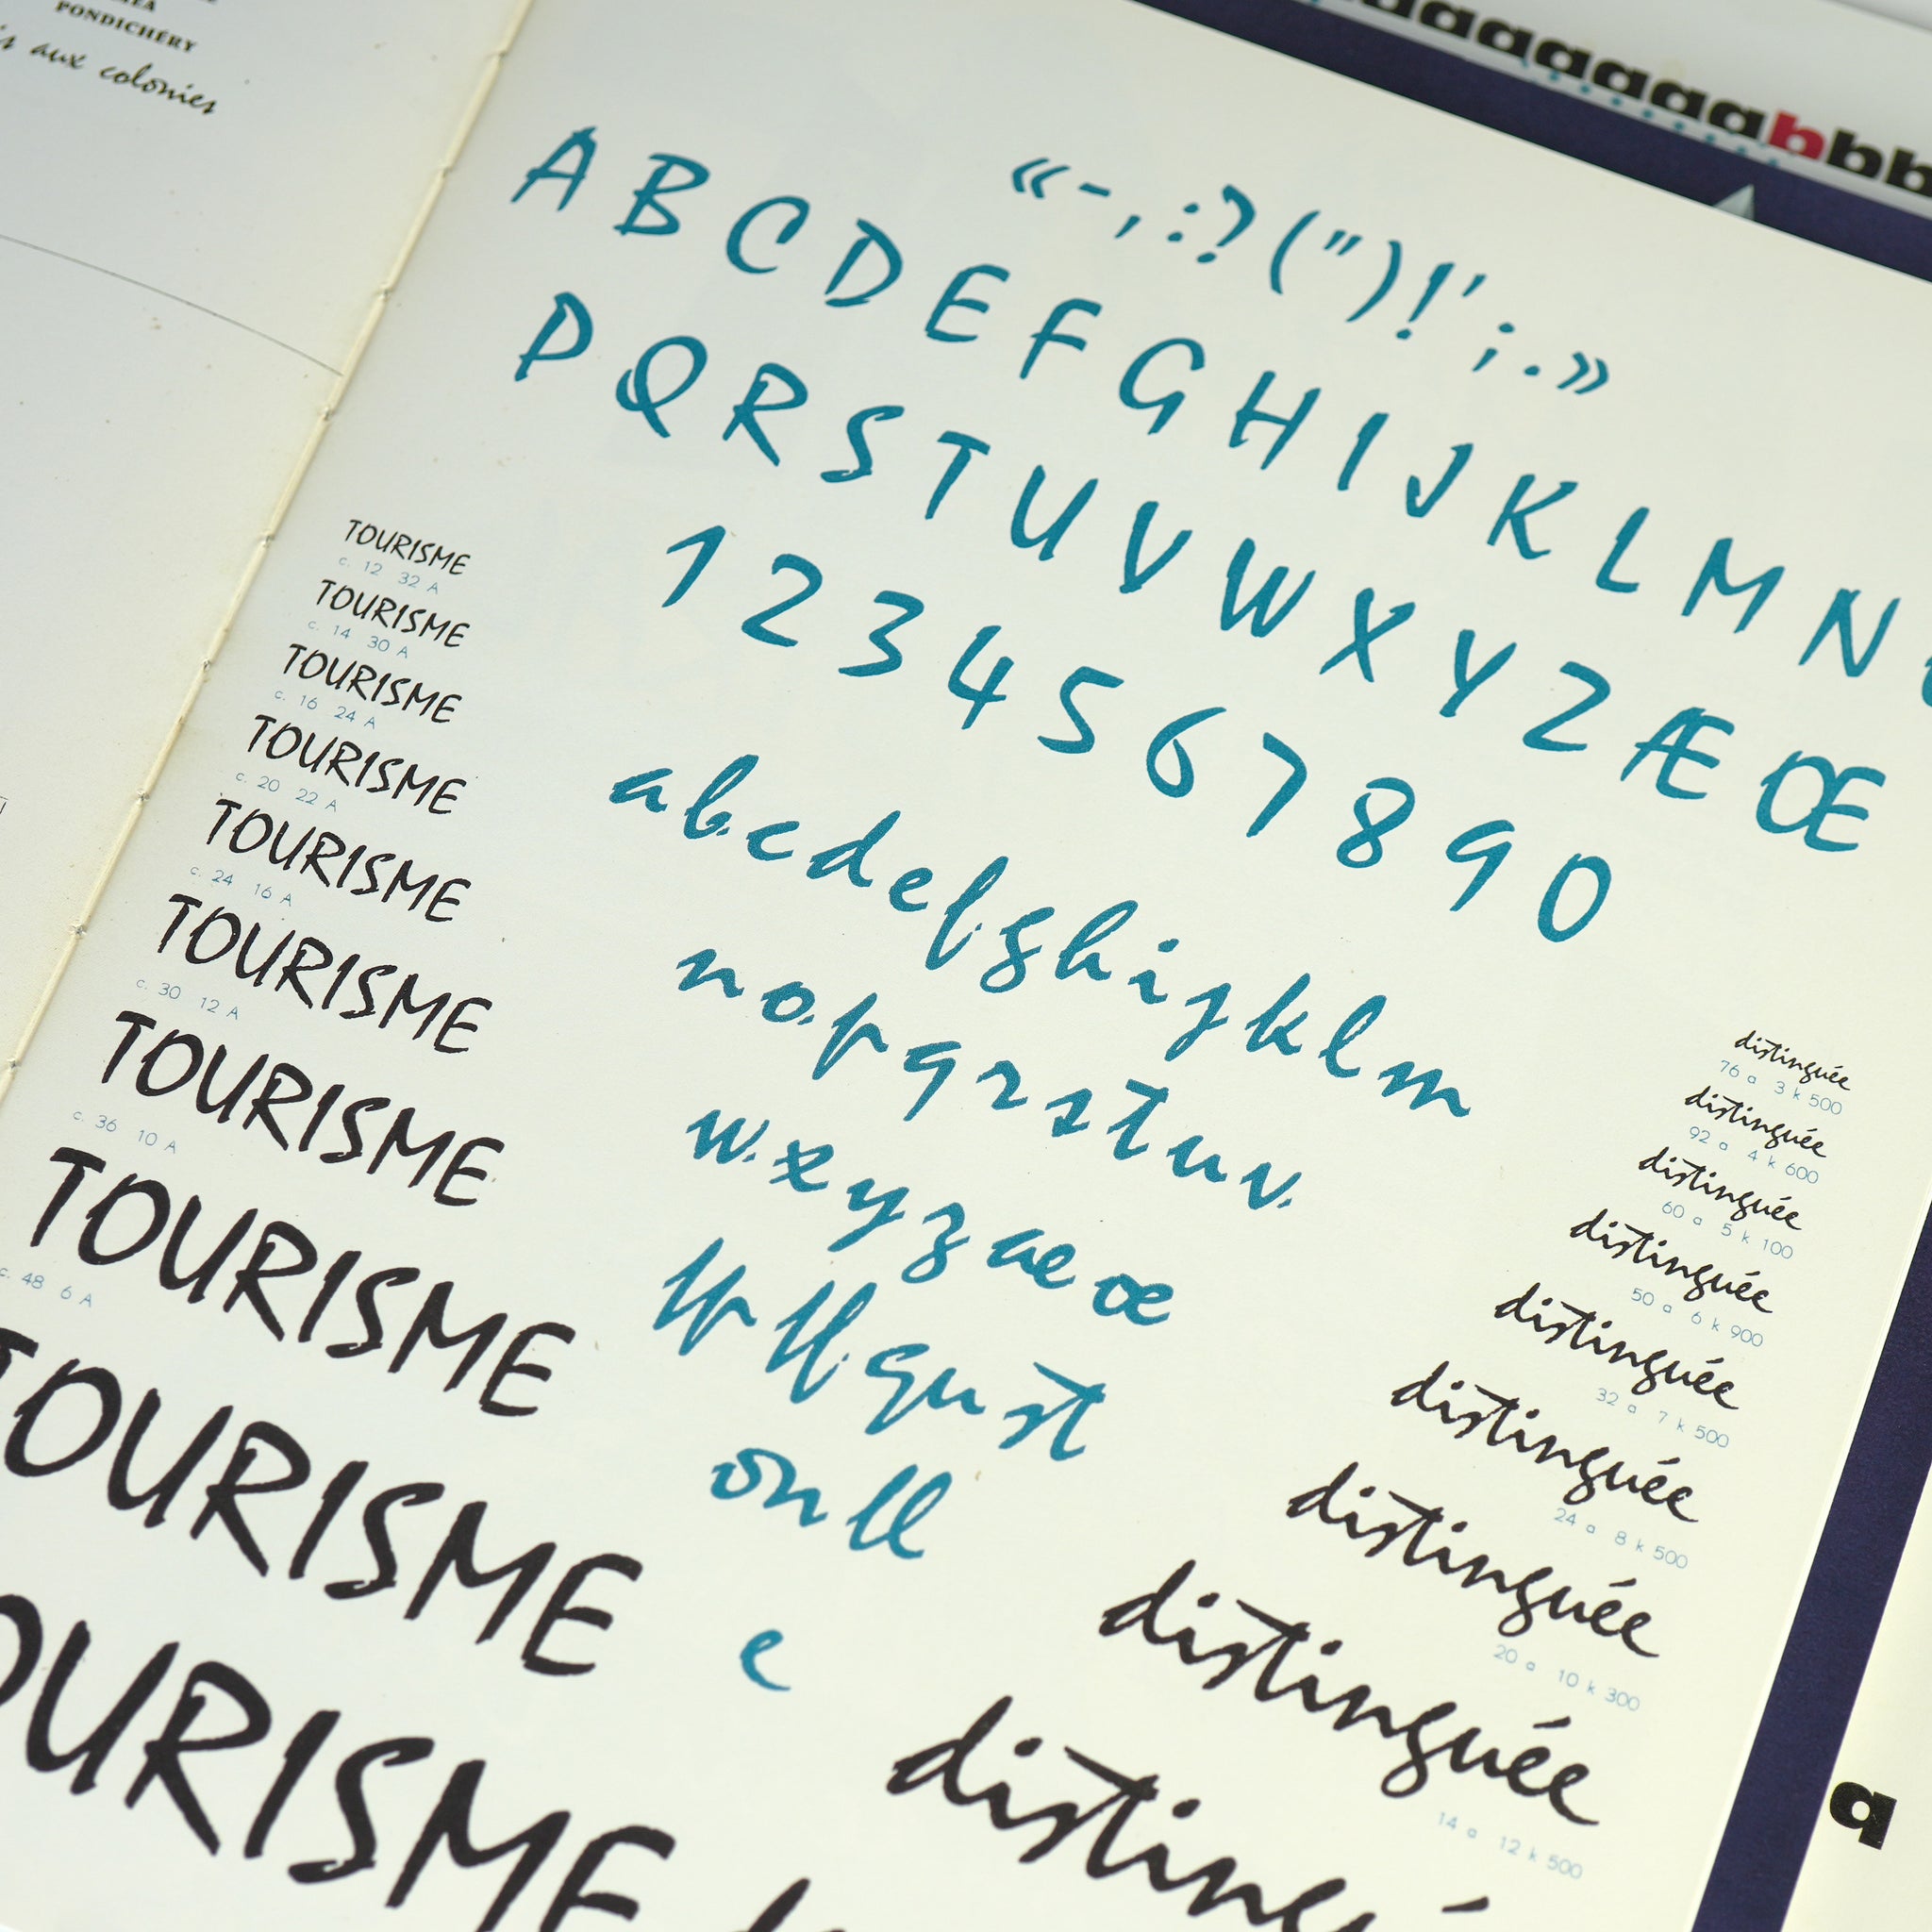 PONDICHÉRY
aux colonies
aaaaaaaabbb
« - , : ? ( " ) ! ' ; . »
A B C D E F G H I J K L M N
P Q R S T U V W X Y Z Æ Œ
1 2 3 4 5 6 7 8 9 0
a b c d e f g h i j k l m
n o p q r s t u v
w x y z æ œ
qu st
on ll
e
TOURISME
c. 12 32 A
TOURISME
c. 14 30 A
TOURISME
c. 16 24 A
TOURISME
c. 20 22 A
TOURISME
c. 24 16 A
TOURISME
c. 30 12 A
TOURISME
c. 36 10 A
TOURISME
c. 48 6 A
TOURISME
OURISME
distinguée
76 a 3 k 500
distinguée
92 a 4 k 600
distinguée
60 a 5 k 100
distinguée
50 a 6 k 900
distinguée
32 a 7 k 500
distinguée
24 a 8 k 500
distinguée
20 a 10 k 300
distinguée
14 a 12 k 500
a